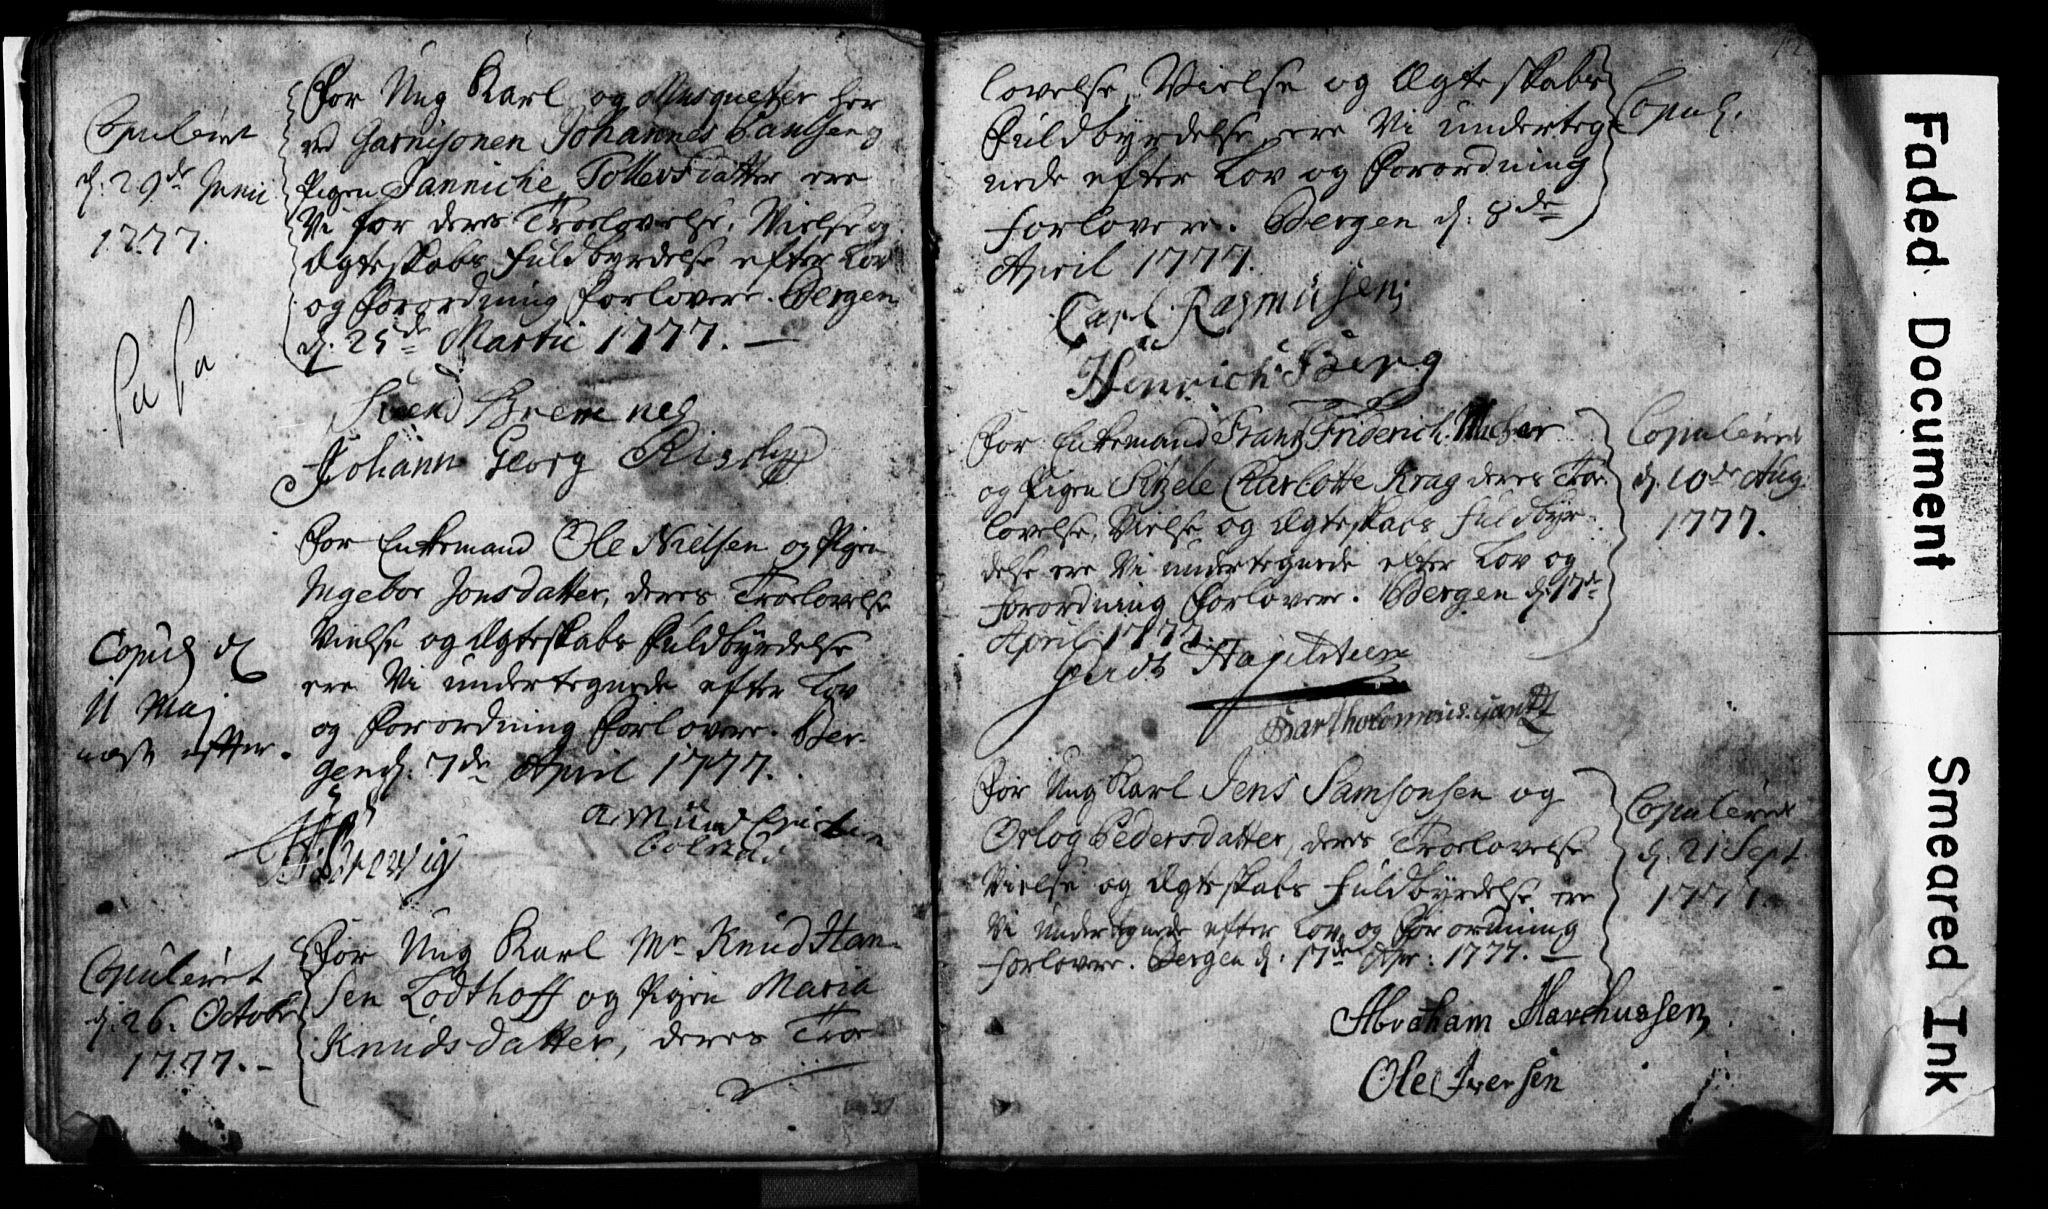 Copuleret
d: 29de Junii
1777.
For Ung Karl og Musqueter her
ved Garnisonen Johannes Paulsen og
Pigen Janniche Tollevsdatter ere
Vi for deres Troelovelse, Vielse og
Ægteskabs Fuldbyrdelse efter Lov
og Forordning Forlovere. Bergen
d. 25de Martii 1777. —
Johann Georg
For Enkemand Ole Nielsen og Pigen
Ingebor Jonsdatter, deres Troelovelse
Vielse og Ægteskabs Fuldbyrdelse
ere Vi undertegnede efter Lov
og Forordning Forlovere. Ber-
gen d: 7de April 1777.
Copul d
11 Maj
næst efter.
Copuleret
d. 26. Octobr
1777. -
For Ung Karl Mr Knud Han-
sen Lodthoff og Pigen Maria
Knudsdatter, deres Troe-
lovelse, Vielse og Ægteskabs
Fuldbyrdelse ere Vi underteg-
nede efter Lov og Forordning
Forlovere. Bergen d: 8de
April 1777.
Copul.
Carl Rasmusen
Henrich Berg
For Enkemand Frantz Friderich
og Pigen Sitzele Charlotte Krag deres Troe-
lovelse, Vielse og Ægteskabs Fuldbyr-
delse ere Vi undertegnede efter Lov og
Forordning Forlovere. Bergen d. 17de
April 1777.
Copuleret
d. 10de Aug.
1777.
Gerdt
Bartholomeus
For Ung Karl Jens Samsonsen og
Orlog Pedersdatter, deres Troelovelse
Vielse og Ægteskabs Fuldbyrdelse ere
Vi undertegnede efter Lov og Forordning
Forlovere. Bergen d: 17de Apr: 1777. —
Copuleret
d. 21 Sept.
1777.
Abraham Marchussen
Ole Iversen
Faded Document
Smeared Ink